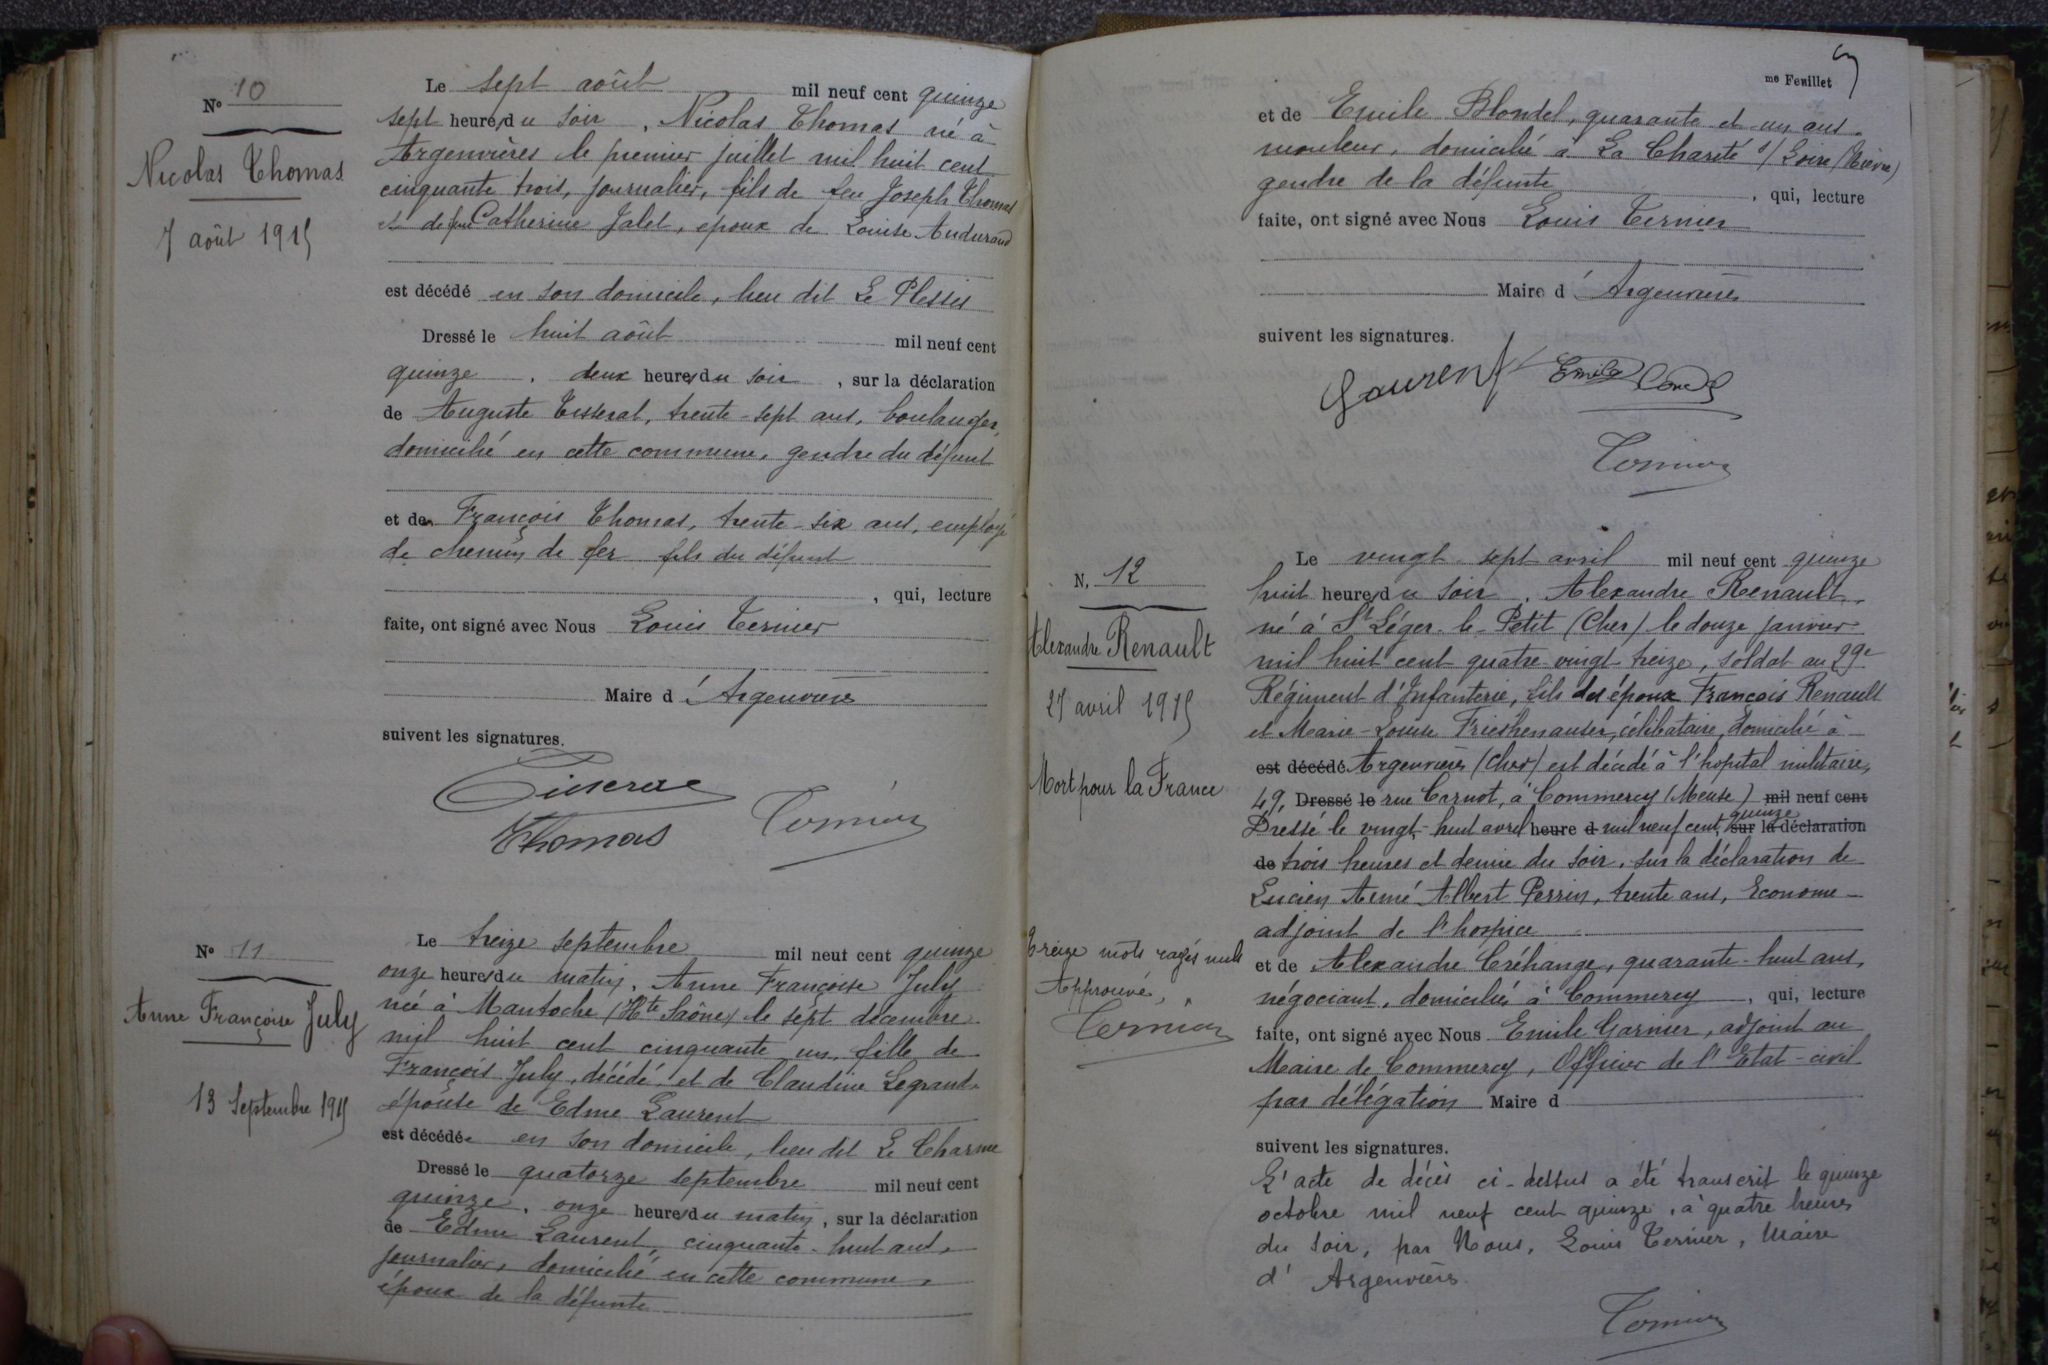 N° 10
Nicolas Thomas
7 août 1915
Le sept août mil neuf cent quinze
sept heures du soir, Nicolas Thomas né à
Argenvières le premier juillet mil huit cent
cinquante trois, journalier, fils de feu Joseph Thomas
et de feue Catherine Jalet, époux de Louise Audurand
est décédé en son domicile, lieu dit Le Plessis
Dressé le huit août mil neuf cent
quinze, deux heures du soir, sur la déclaration
de Auguste Tisserat, trente-sept ans, boulanger,
domicilié en cette commune, gendre du défunt
et de François Thomas, trente-six ans, employé
de chemin de fer fils du défunt
, qui, lecture
faite, ont signé avec Nous Louis Ternier
Maire d'Argenvières
suivent les signatures.
Thomas
Ternier
N° 11
Anne Françoise July
13 Septembre 1915
Le treize septembre mil neuf cent quinze
onze heures du matin, Anne Françoise July
née à Mantoche (Hte Saône) le sept décembre
mil huit cent cinquante un, fille de
François July, décédé et de Claudine Legrand,
épouse de Edme Laurent
est décédée en son domicile, lieu dit Le Charme
Dressé le quatorze septembre mil neuf cent
quinze, onze heures du matin, sur la déclaration
de Edme Laurent, cinquante-huit ans,
journalier, domicilié en cette commune,
époux de la défunte
me Feuillet
et de Emile Blondel, quarante et un ans,
mouleur, domicilié à La Charité s/Loire (Nièvre)
gendre de la défunte, qui, lecture
faite, ont signé avec Nous Louis Ternier
Maire d'Argenvières
suivent les signatures.
Laurent Emile Blondel
Ternier
N. 12
Alexandre Renault
27 avril 1915
Mort pour la France
Treize mots rayés nuls
Approuvé,
Ternier
Le vingt sept avril mil neuf cent quinze
huit heures du soir, Alexandre Renault,
né à St Léger-le-Petit (Cher) le douze janvier
mil huit cent quatre vingt treize, soldat au 29e
Régiment d'Infanterie, fils des époux François Renault
et Marie-Louise Frieshenauser, célibataire, domicilié à
est décédé Argenvières (Cher) est décédé à l'hopital militaire,
49, Dressé le rue Carnot, à Commercy (Meuse) mil neuf cent
Dressé le vingt-huit avril heure d mil neuf cent quinze, sur la déclaration
de trois heures et demie du soir, sur la déclaration de
Lucien Aimé Albert Perrin, trente ans, Econome
adjoint de l'hospice
et de Alexandre Créhange, quarante-huit ans,
négociant, domiciliés à Commercy, qui, lecture
faite, ont signé avec Nous Emile Garnier, adjoint au
Maire de Commercy, Officier de l'Etat-civil
par délégation Maire d
suivent les signatures.
L'acte de décès ci-dessus a été transcrit le quinze
octobre mil neuf cent quinze, à quatre heures
du soir, par Nous, Louis Ternier, Maire
d'Argenvières.
Ternier